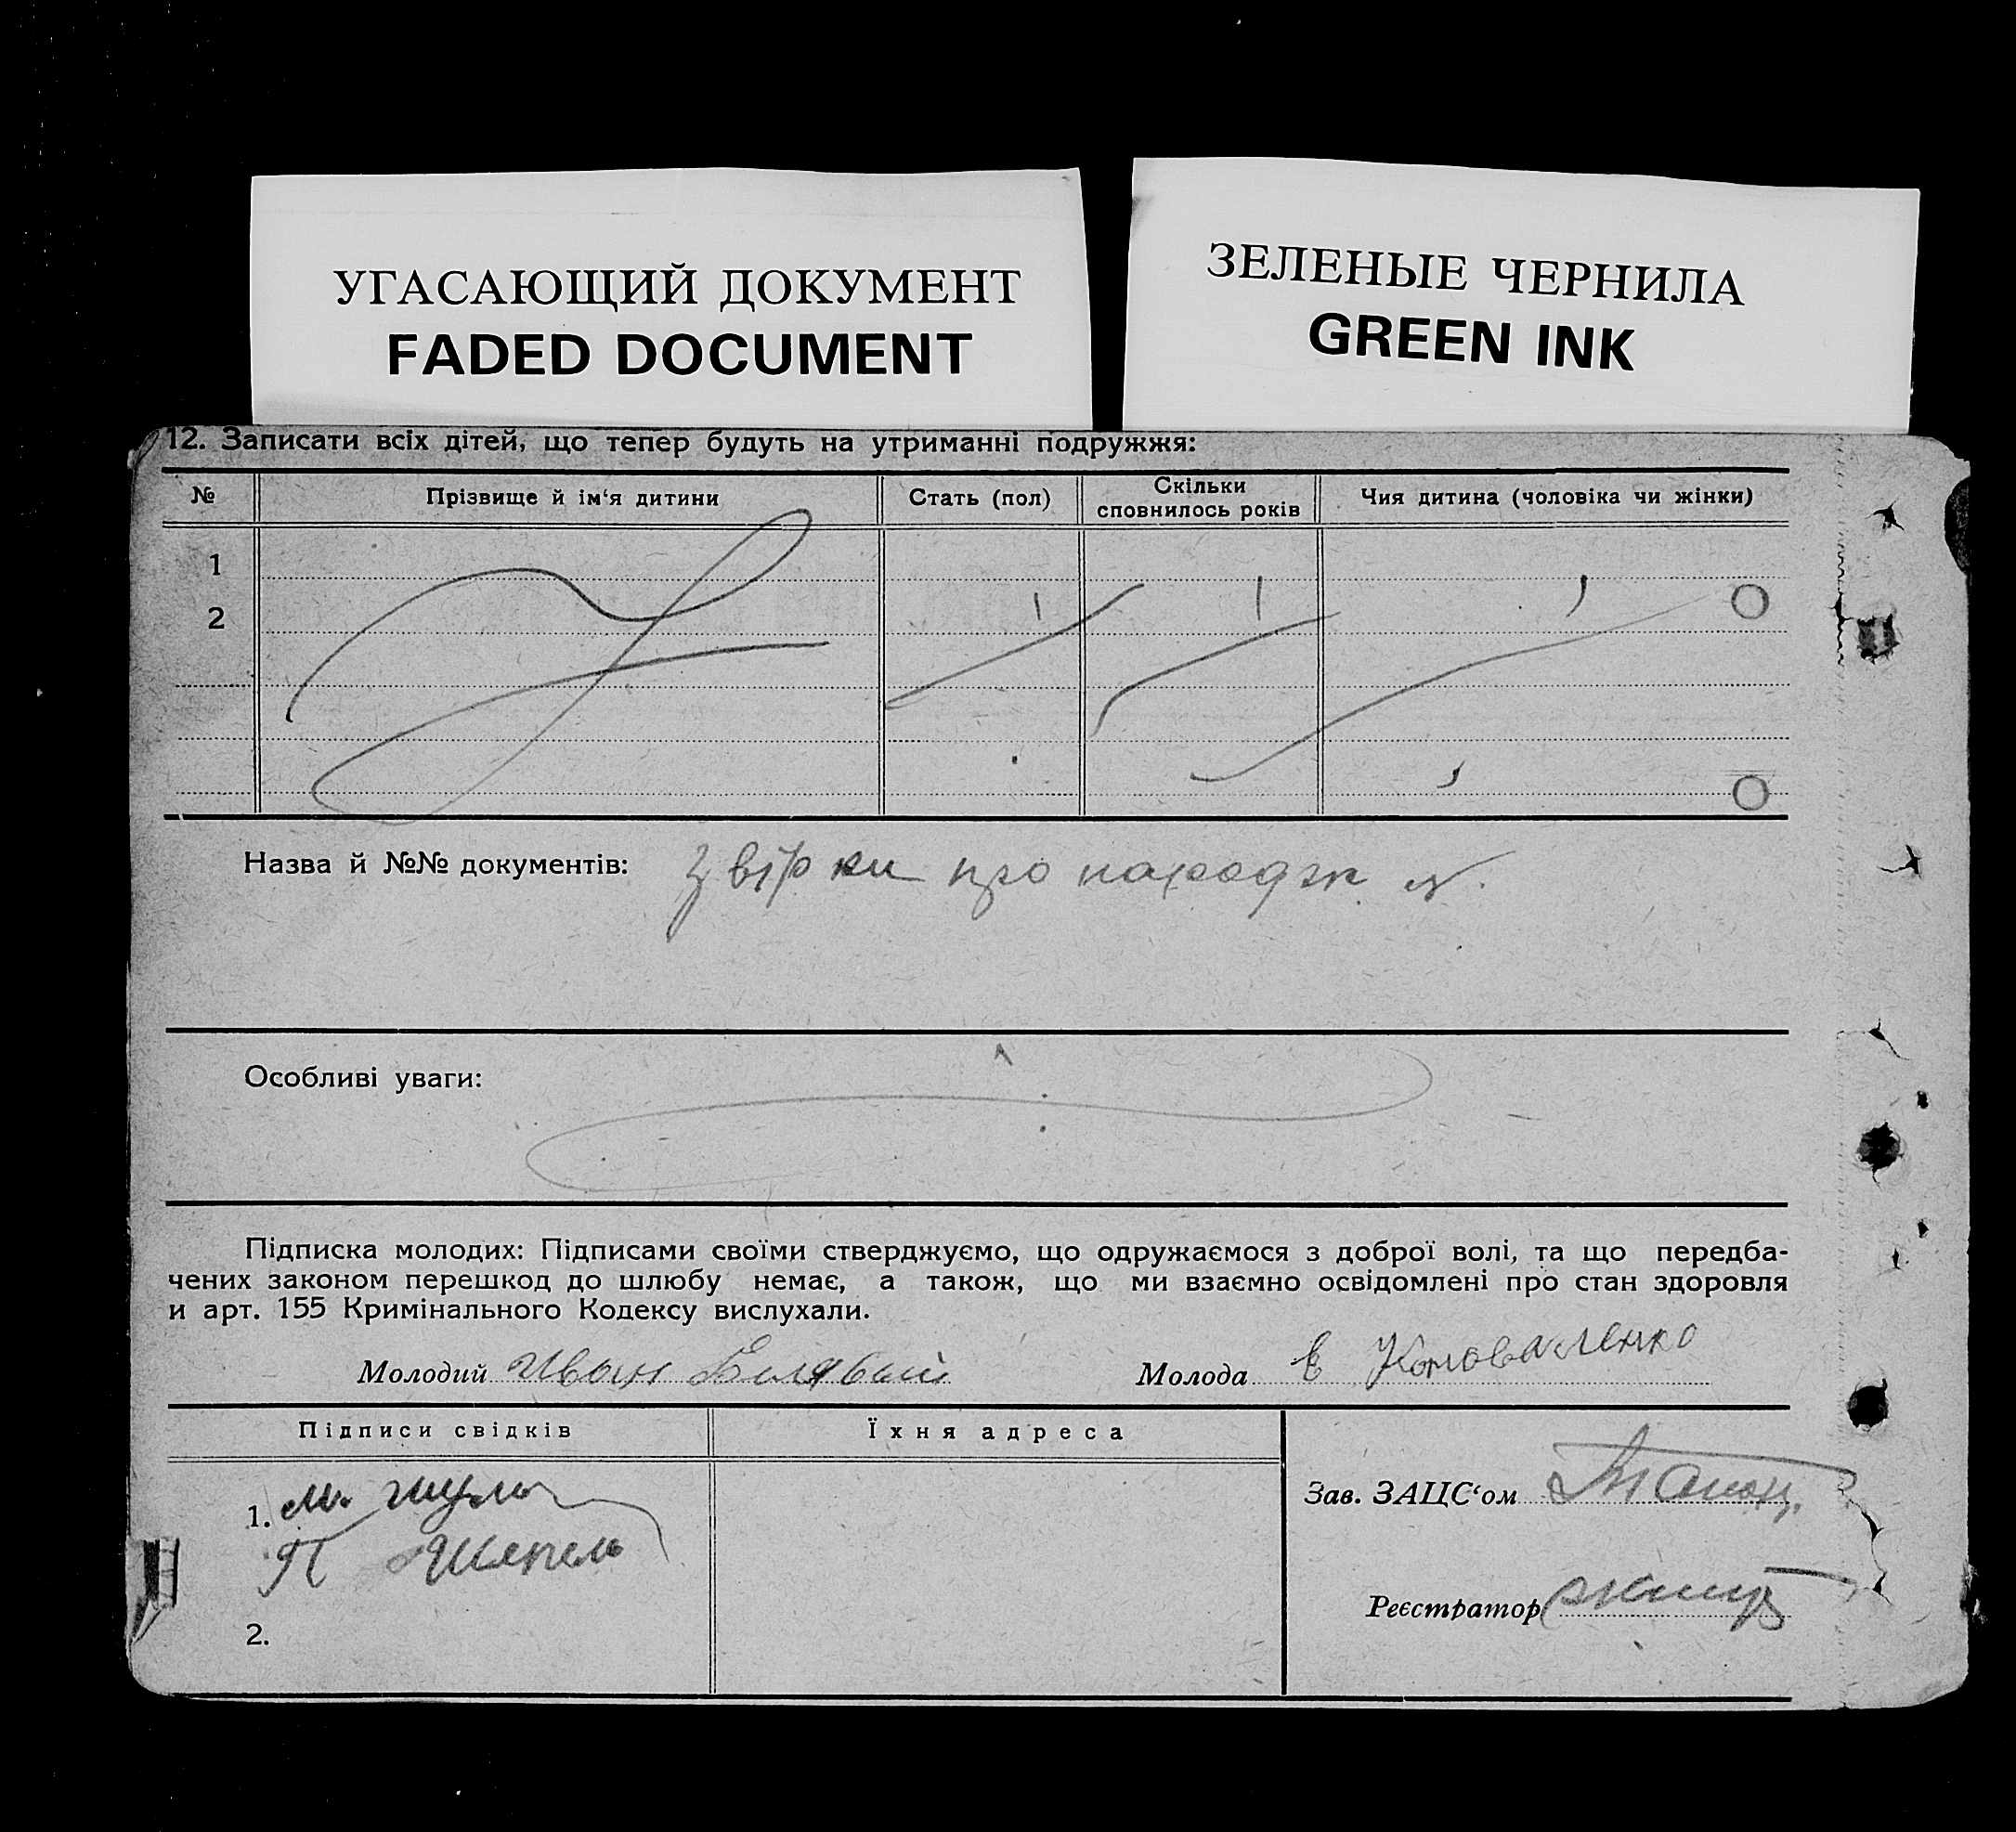 УГАСАЮЩИЙ ДОКУМЕНТ
FADED DOCUMENT
ЗЕЛЕНЫЕ ЧЕРНИЛА
GREEN INK
12. Записати всіх дітей, що тепер будуть на утриманні подружжя:
№ Прізвище й ім‘я дитини Стать (пол) Скільки сповнилось років Чия дитина (чоловіка чи жінки)
1
2
Назва й №№ документів: про
Особливі уваги:
Підписка молодих: Підписами своїми стверджуємо, що одружаємося з доброї волі, та що передба-
чених законом перешкод до шлюбу немає, а також, що ми взаємно освідомлені про стан здоровля
и арт. 155 Кримінального Кодексу вислухали.
Молодий Иван Молода Е Коноваленко
Підписи свідків Їхня адреса
Зав. ЗАЦС‘ом
1. М.
П Шепель
Реєстратор
2.